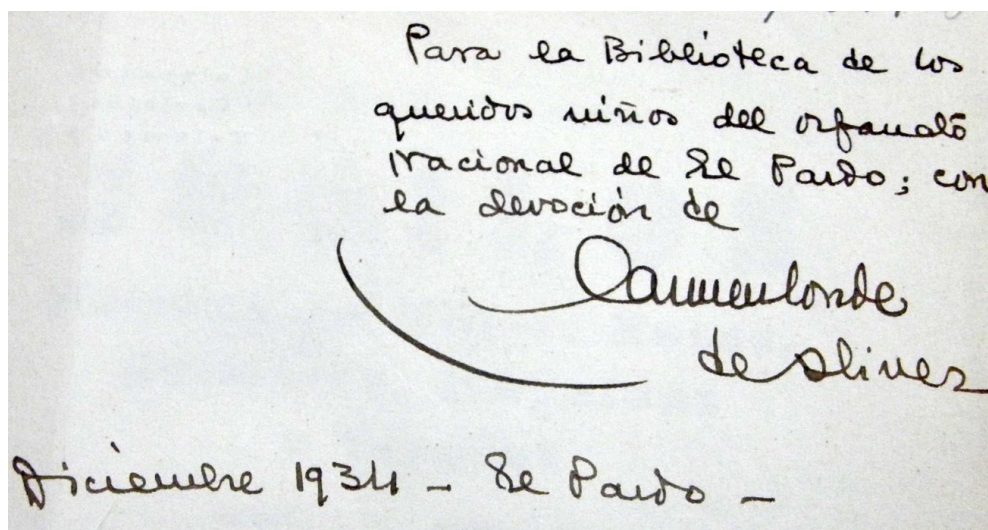 Para la Biblioteca de los
queridos niños del orfanato
Nacional de El Pardo; con
la devoción de
Carmen Conde
de Oliver
Diciembre 1934 - El Pardo -